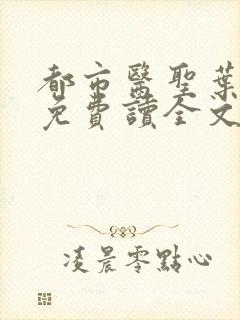 都市醫聖葉
免費讀全文
凌晨零點心